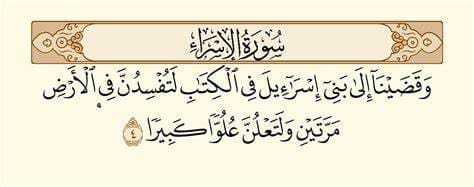 سُورَةُ الْإِسْرَاءِ
وَقَضَيْنَآ إِلَىٰ بَنِىٓ إِسْرَٰٓءِيلَ فِى ٱلْكِتَٰبِ لَتُفْسِدُنَّ فِى ٱلْأَرْضِ
مَرَّتَيْنِ وَلَتَعْلُنَّ عُلُوًّا كَبِيرًا ٤